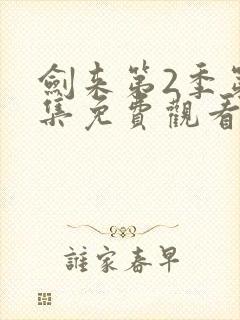 劍来第2季第
集免費觀看
誰家春早